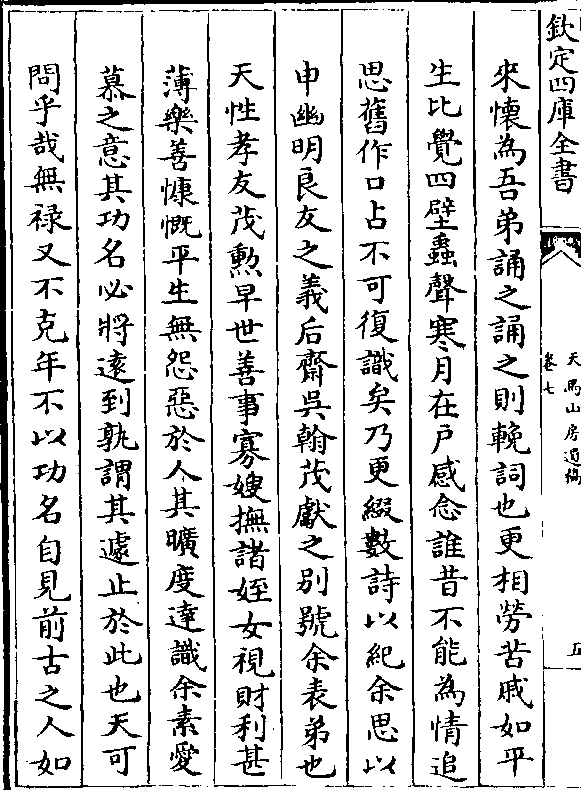 欽定四庫全書
天馬山房遺稿
卷七
五
來懷為吾弟誦之誦之則輓詞也更相勞苦戚如平
生比覺四壁蟲聲寒月在戶感念誰昔不能為情追
思舊作口占不可復識矣乃更綴數詩以紀余思以
申幽明良友之義后齋吳翰茂獻之別號余表弟也
天性孝友茂勲早世善事寡嫂撫諸姪女視財利甚
薄樂善慷慨平生無怨惡於人其曠度達識余素愛
慕之意其功名必將逺到孰謂其遽止於此也天可
問乎哉無禄又不克年不以功名自見前古之人如